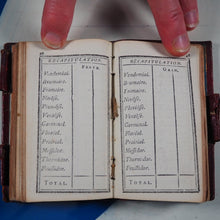 RÉCAPITULATION.
Vendemiai.
Brumaire.
Frimaire.
Nivôse.
Pluviôse.
Ventôse.
Germinal.
Floréal.
Prairial.
Messidor.
Thermidor.
Fructidor.
TOTAL.
RÉCAPITULATION.
Vendemiai.
Brumaire.
Frimaire.
Nivôse.
Pluviôse.
Ventôse.
Germinal.
Floréal.
Prairial.
Messidor.
Thermidor.
Fructidor.
TOTAL.